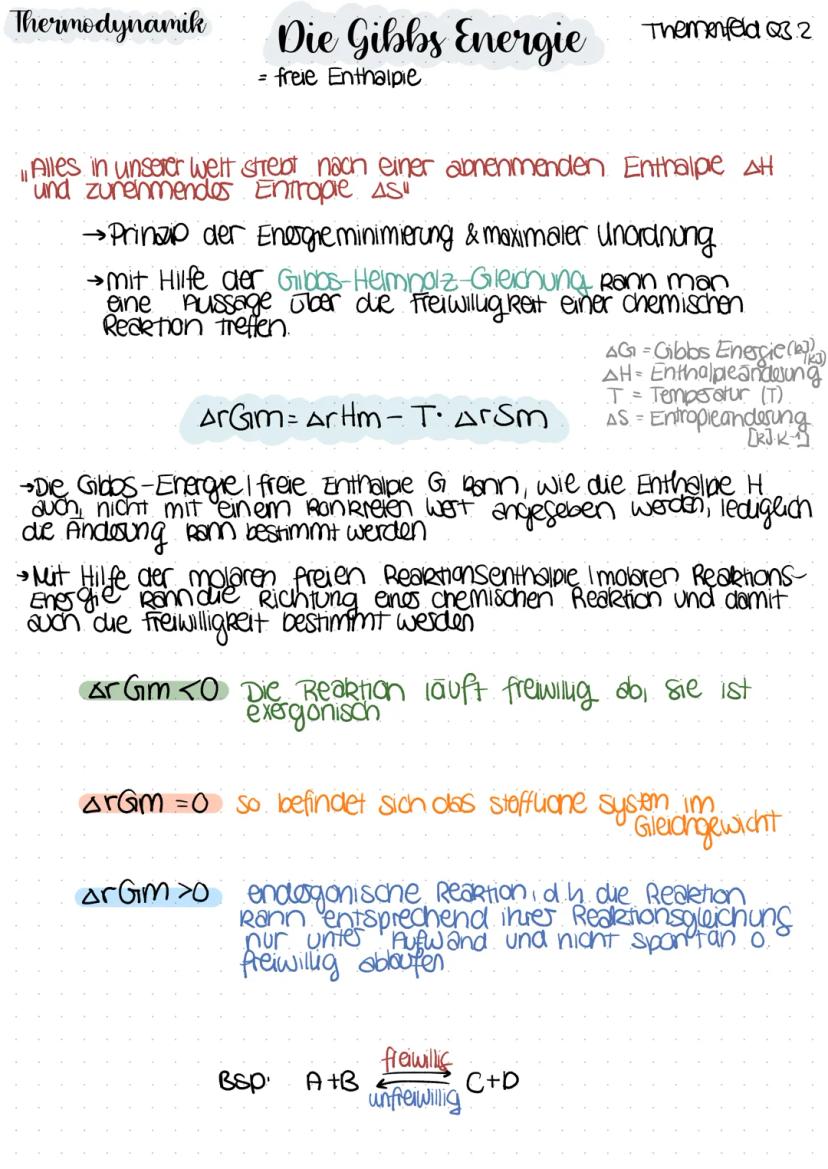 Thermodynamik
Die Gibbs Energie
Themenfeld Q3.2
= freie Enthalpie
„Alles in unserer Welt strebt nach einer abnehmenden Enthalpie ΔH
und zunehmendes Entropie ΔS"
→ Prinzip der Energieminimierung & maximaler Unordnung
→ mit Hilfe der Gibbs-Helmholz-Gleichung kann man
eine Aussage über die Freiwilligkeit einer chemischen
Reaktion treffen.
ΔG = Gibbs Energie (kJ)
(kJ)
ΔH = Enthalpieänderung
T = Temperatur (T)
ΔS = Entropieänderung
[kJ·K-1]
ΔrGm = ΔrHm - T · ΔrSm
→ Die Gibbs-Energie / freie Enthalpie G kann, wie die Enthalpe H
auch, nicht mit einem konkreten Wert angegeben werden, lediglich
die Änderung kann bestimmt werden
→ Mit Hilfe der molaren freien Reaktionsenthalpie / molaren Reaktions-
Energie kann die Richtung einer chemischen Reaktion und damit
auch die Freiwilligkeit bestimmt werden
ΔrGm <0 Die Reaktion läuft freiwillig ab, sie ist
exergonisch
ΔrGm =0 so befindet sich das stoffliche System im
Gleichgewicht
ΔrGm >0 endergonische Reaktion, d.h. die Reaktion
kann entsprechend ihrer Reaktionsgleichung
nur unter Aufwand und nicht spontan o.
freiwillig ablaufen
freiwillig
Bsp: A+B ⇌ C+D
unfreiwillig